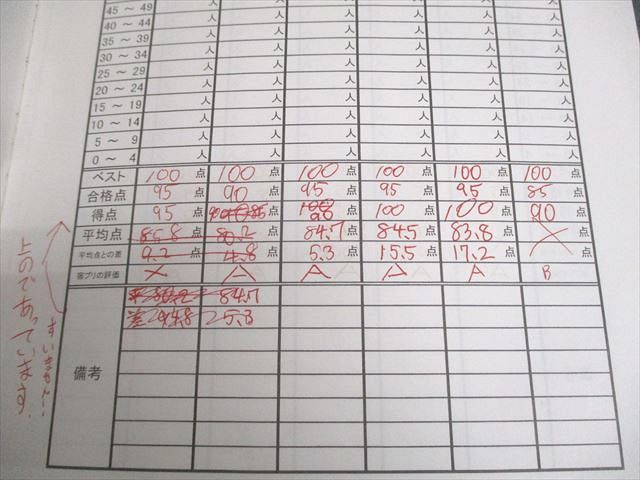 45 ～ 49 人 人 人 人 人 人
40 ～ 44 人 人 人 人 人 人
35 ～ 39 人 人 人 人 人 人
30 ～ 34 人 人 人 人 人 人
25 ～ 29 人 人 人 人 人 人
20 ～ 24 人 人 人 人 人 人
15 ～ 19 人 人 人 人 人 人
10 ～ 14 人 人 人 人 人 人
5 ～ 9 人 人 人 人 人 人
0 ～ 4 人 人 人 人 人 人
ベスト 100 点 100 点 100 点 100 点 100 点 100 点
合格点 95 点 90 点 95 点 95 点 95 点 85 点
得点 95 点 点 点 100 点 100 点 90 点
平均点 85.8 点 80.2 点 84.7 点 84.5 点 83.8 点 × 点
平均点との差 9.2 点 4.8 点 5.3 点 15.5 点 17.2 点 点
宿プリの評価 × A A A A B
84.7
25.3
備考
上のであっています。
すいません…